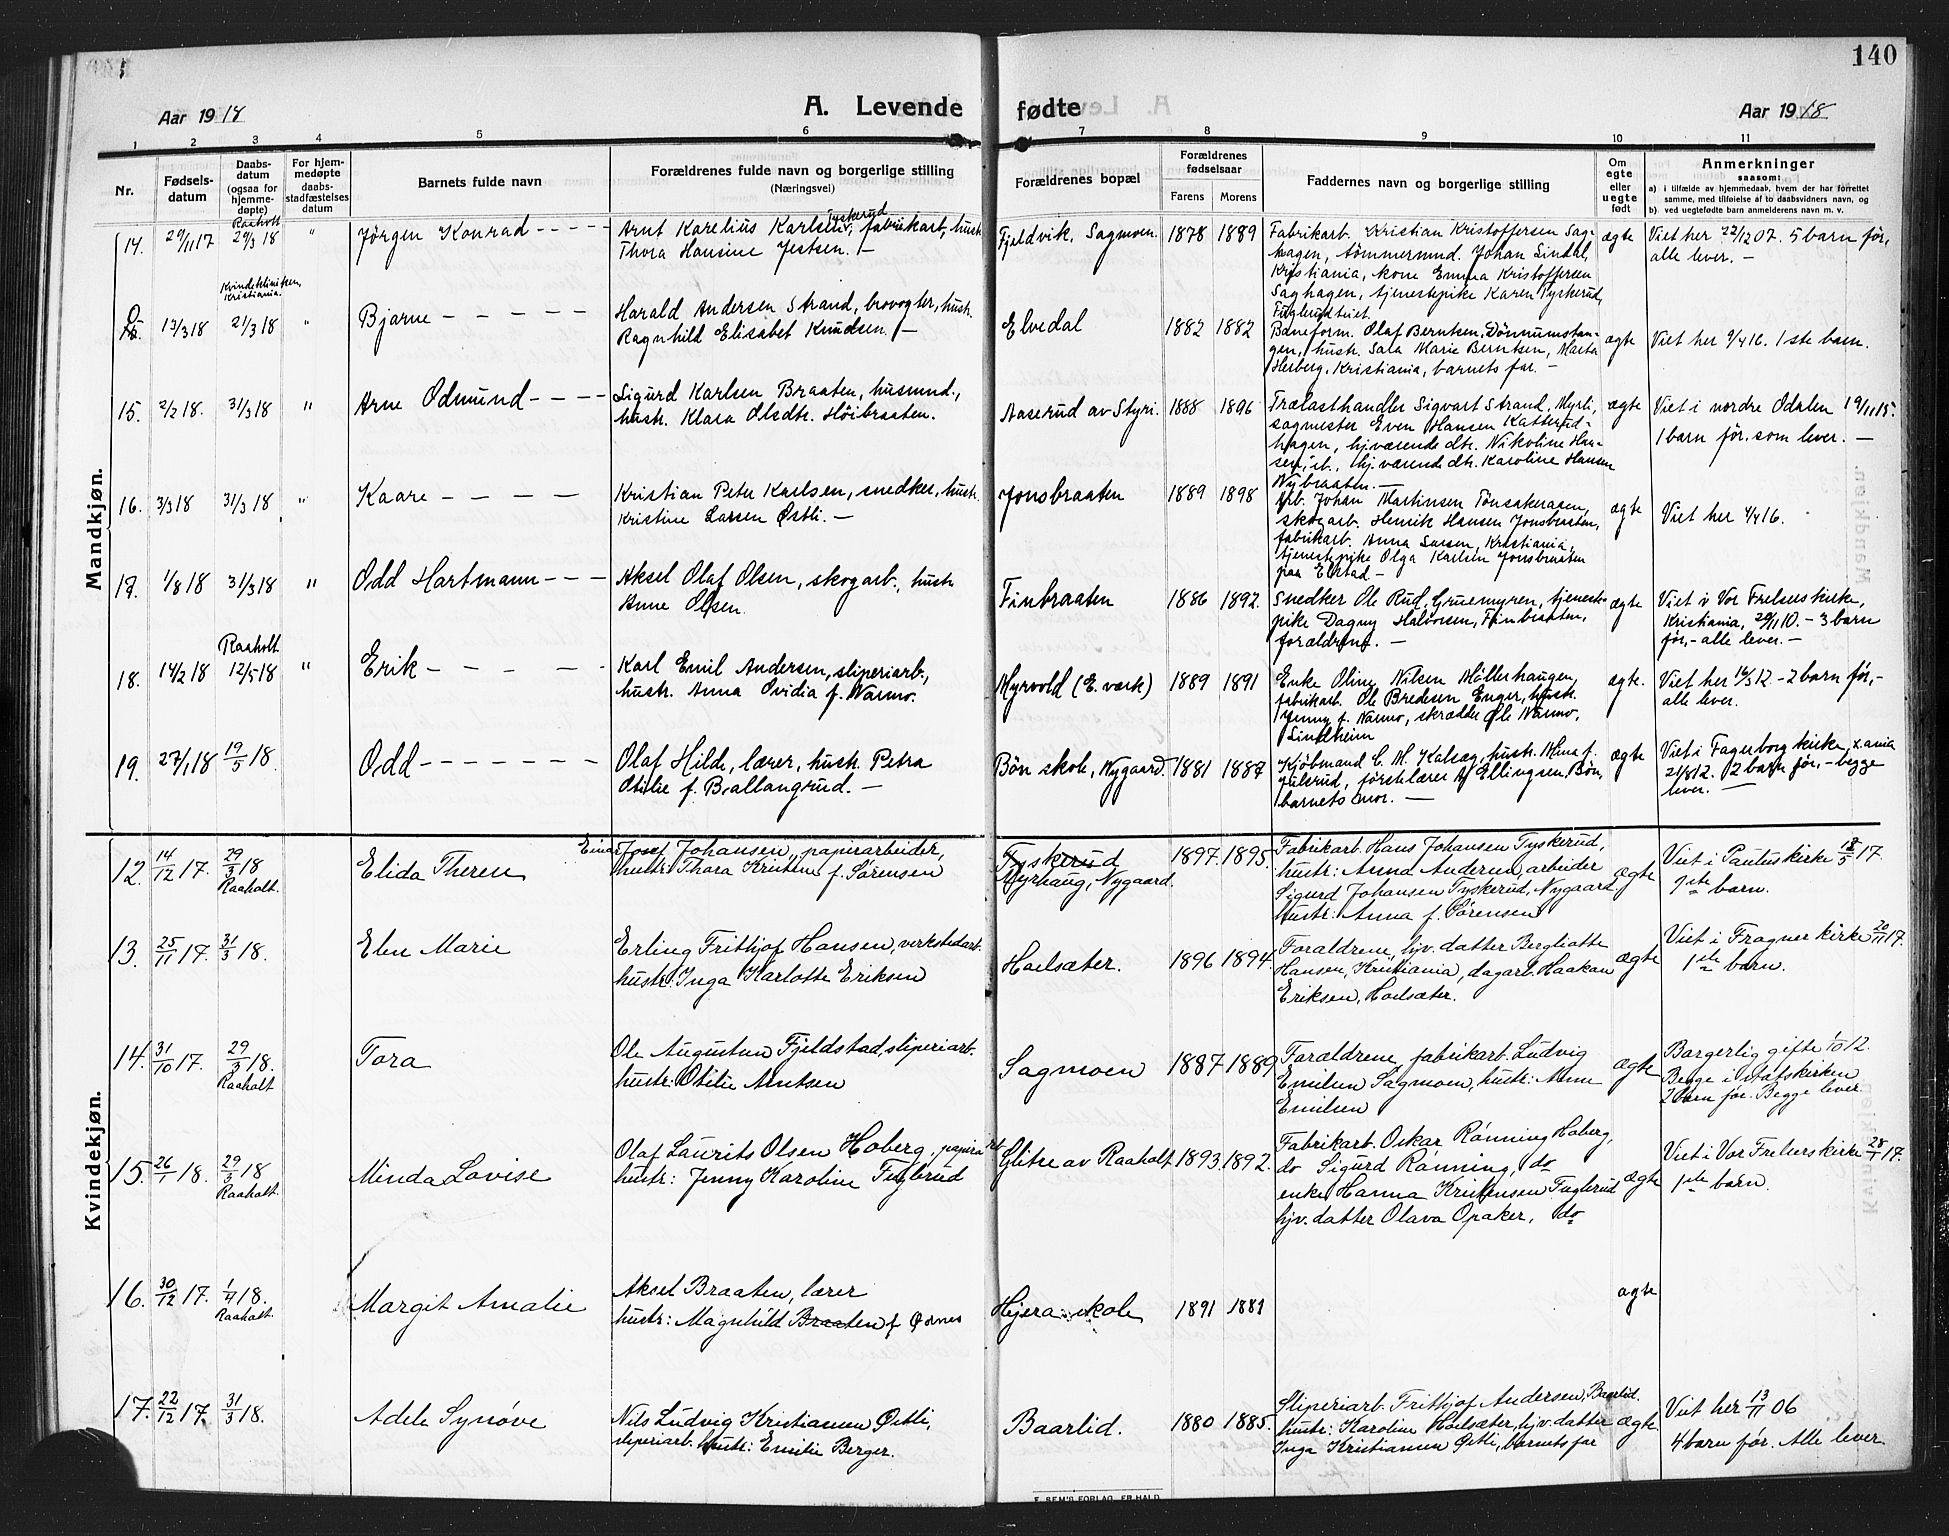 140
Aar 1918
A. Levende fødte
Aar 1918
1 2 3 4 5 6 7 8 9 10 11
Nr.
Fødsels-
datum
Daabs-
datum
(ogsaa for
hjemme-
døpte)
For hjem-
medøpte
daabs-
stadfæstelses
datum
Barnets fulde navn
Forældrenes fulde navn og borgerlige stilling
(Næringsvei)
Forældrenes bopæl
Forældrenes
fødselsaar
Farens Morens
Faddernes navn og borgerlige stilling
Om
egte
eller
uegte
født
Anmerkninger
saasom:
a) i tilfælde av hjemmedaab, hvem der har forrettet
samme, med tilføielse af to daabsvidners navn, og
b) ved uegtefødte barn anmelderens navn m. v.
Mandkjøn.
14. 29/11 17
Raaholt
29/3 18
"
Jørgen Konrad
Tyskerud
Arnt Karelius Karlsen, fabrikarb., hustr.
Thora Hansine Jensen. —
Fjeldvik, Sagmoen.
1878 1889
Fabrikarb. Kristian Kristoffersen Sag-
hagen, tømmermand. Johan Lindal,
Kristiania, kone Emma Kristoffersen
Saghagen, tjenestepike Karen Tyskerud,
Fuglerudteiet.
ægte
Viet her 22/12 07. 5 barn før,
alle lever. —
13/3 18
Kvindeklinikken,
Kristiania.
21/3 18
"
Bjarne
Harald Andersen Strand, brovogter, hustr.
Ragnhild Elisabet Knudsen. —
Elvedal
1882 1882
Baneform. Olaf Berntsen, Dønnumstan-
gen, hustr. Sara Marie Berntsen, Marta
Herberg, Kristiania, barnets far. —
ægte
Viet her 9/4 16. 1ste barn.
15. 2/2 18. 31/3 18 "
Arne Odmund
Sigurd Karlsen Braaten, husmnd.,
hustr. Klara Olsdtr. Høibraaten.
Aaserud av Styri.
1888 1896
Trælasthandler Sigvart Strand, Myrli,
sagmester Even Hansen Katterud-
hagen, hjv.ærende dtr. Nikoline Han-
sen, st., hj.værende dtr. Karoline Hansen
Nybraaten. —
ægte
Viet i nordre Odalen 19/11 15.
1 barn før. som lever. —
16. 3/3 18 31/3 18 "
Kaare
Kristian Peter Karlsen, snedker, hustr.
Kristine Larsen Østli. —
Jonsbraaten
1889 1898
Arb. Johan Martinsen Tønsakeraasen,
skogarb. Henrik Hansen Jonsbraaten,
fabrikarb. Anna Larsen, Kristiania,
tjenestepike Olga Karlsen Jonsbraaten
paa Elstad —
ægte
Viet her 4/4 16.
17. 1/8 18 31/3 18 "
Odd Hartmann
Aksel Olaf Olsen, skogarb., hustr.
Anne Olsen.
Finbraaten
1886 1892.
Snedker Ole Rud, Gruemyren, tjeneste-
pike Dagny Halvorsen, Finbraaten,
forældrene. —
ægte
Viet i Vor Frelsers kirke,
Kristiania, 20/11 10. — 3 barn
før, — alle lever. —
18. 14/2 18
Raaholt
12/5 18
"
Erik
Karl Emil Andersen, sliperiarb.,
hustr. Anna Ovidia f. Narmo.
Myrvold (E. værk)
1889 1891
Enke Oline Nilsen Møllerhaugen,
fabrikarb. Ole Bredesen Enger, hustr.
Jenny f. Narmo, skrædder Ole Narmo,
Lindheim
ægte.
Viet her 16/3 12. — 2 barn før, —
alle lever.
19. 27/1 18 19/5 18.
Odd
Olaf Hilde, lærer, hustr. Petra
Otilie f. Ballangrud. —
Bøn skole, Nygaard.
1881 1887
Kjøbmand C. M. Kalsæg, hustr. Mina f.
Julsrud, førstelærer A. Ellingsen, Bøn,
barnets mor. —
ægte
Viet i Fagerborg kirke, X.ania
21/8 12. 2 barn før, — begge
lever. —
Kvindekjøn.
12. 14/12 17. 29/3 18
Raaholt.
Elida Therese
Einar Josef Johansen, papirarbeider,
hustr: Thora Kristine f. Sørensen
Tyskerud
Myrhaug, Nygaard.
1897. 1895.
Fabrikarb. Hans Johansen Tyskerud,
hustr: Anna Andersen, arbeider
Sigurd Johansen Tyskerud, Nygaard.
hustr: Anna f. Sørensen
ægte
Viet i Paulus kirke 18/5 17.
1ste barn.
13. 25/11 17. 31/3 18.
Elen Marie
Erling Frithjof Hansen, verkstedarb.
hustr: Inga Karlotte Eriksen
Hoelsæter.
1896 1894.
Forældrene, hjv. datter Bergliotte
Hansen, Kristiania, dagarb. Haakon
Eriksen, Hoelsæter.
ægte
Viet i Frogner kirke 20/11 17.
1ste barn.
14. 31/10 17. 29/3 18.
Raaholt
Tora
Ole Augustun Fjeldstad, sliperiarb.
hustr: Otilie Arntsen
Sagmoen
1887 1889
Forældrene, fabrikarb. Ludvig
Emilsen Sagmoen, hustr: Anne
Emilsen
ægte
Borgerlig gifte 1/10 12.
Begge i statskirken
2 barn før. Begge lever.
15. 26/1 18. 29/3 18
Raaholt.
Minda Lovise
Olaf Laurits Olsen Hoberg, papirarb.
hustr: Jenny Karoline Fuglerud
Glitre av Raaholt
1893. 1892.
Fabrikarb. Oskar Rønning Hoberg,
do Sigurd Rønning, do
enke Hanna Kristensen Fuglerud
hjv. datter Olava Opaker, do
ægte
Viet i Vor Frelsers kirke 28/7 17.
1ste barn.
16. 30/12 17. 1/4 18.
Raaholt.
Margit Amalie
Aksel Braaten, lærer
hustr: Magnhild Braaten f. Ødnes
Hjera skole
1891 1881
ægte
17. 22/12 17. 31/3 18.
Adele Synøve
Nils Ludvig Kristiansen Østli,
sliperiarb. hustr: Emilie Berger.
Baarlid.
1880 1885.
Sliperiarb. Frithjof Andersen, Baarlid.
hustr: Karoline Hoelsæter, hjv. datter
Inga Kristiansen Østli, barnets far
ægte.
Viet her 13/11 06
4 barn før. Alle lever.